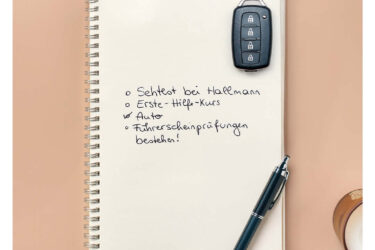 Sehtest bei Hallmann
Erste-Hilfe-Kurs
Auto
Führerscheinprüfungen
bestehen!